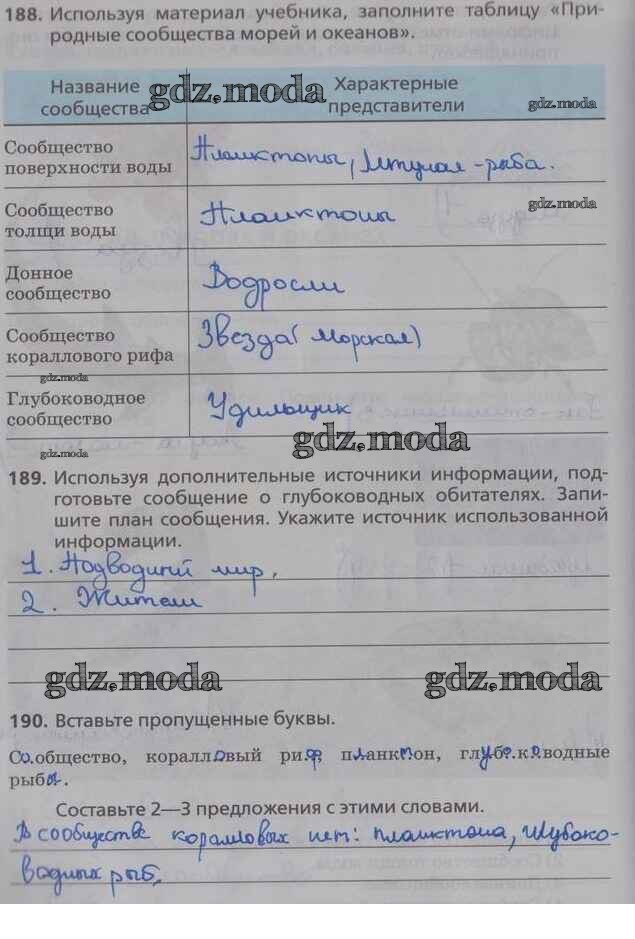 188. Используя материал учебника, заполните таблицу «При-
родные сообщества морей и океанов».
Название
сообщества
gdz.moda
Характерные
представители
gdz.moda
Сообщество
поверхности воды
Планктоны, Штука - рыба.
Сообщество
толщи воды
Планктоны
gdz.moda
Донное
сообщество
Водросли
Сообщество
кораллового рифа
Звезда (Морская)
gdz.moda
Глубоководное
сообщество
Удильщик
gdz.moda
gdz.moda
189. Используя дополнительные источники информации, под-
готовьте сообщение о глубоководных обитателях. Запи-
шите план сообщения. Укажите источник использованной
информации.
1. Подводний мир,
2. Жители
gdz.moda gdz.moda
190. Вставьте пропущенные буквы.
Сообщество, коралловый риф, планктон, глубоководные
рыбы.
Составьте 2—3 предложения с этими словами.
В сообществе коралловых нет: планктона, глубоко-
водных рыб.